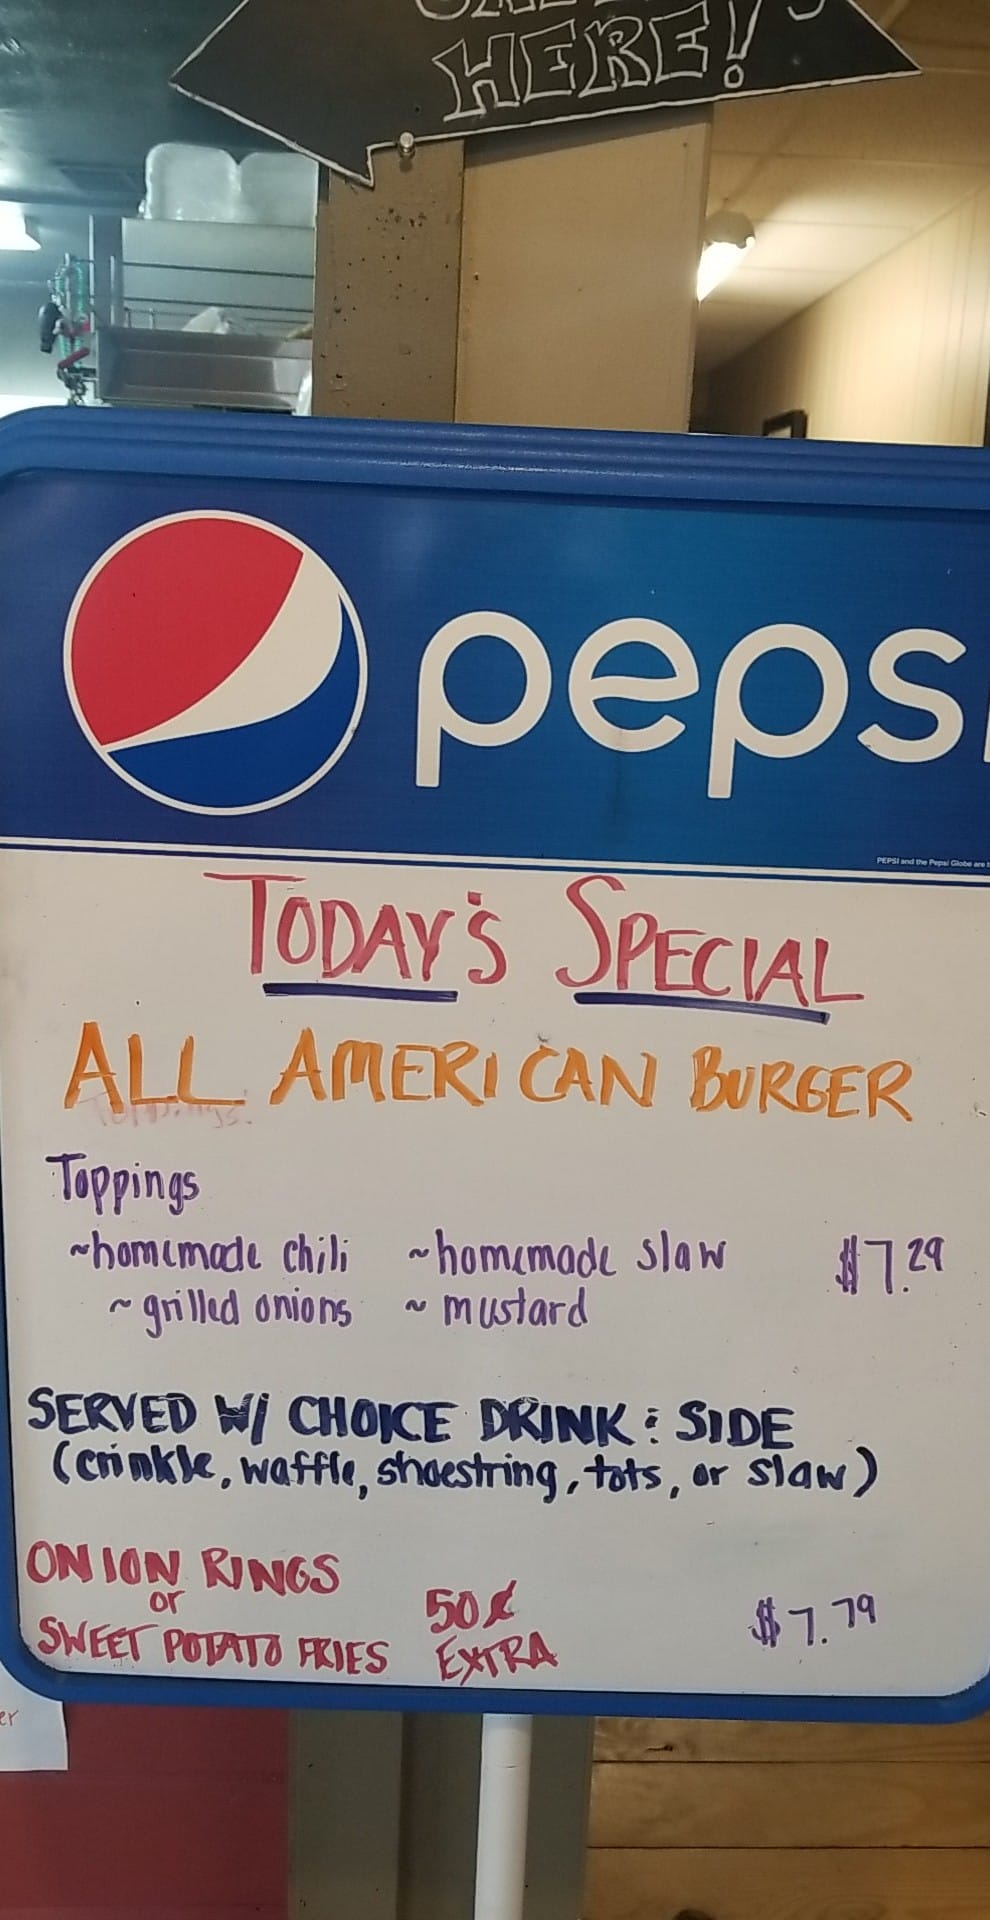 HERE!
peps
PEPSI and the Pepsi Globe are
TODAY'S SPECIAL
ALL AMERICAN BURGER
Toppings:
Toppings
~homemade chili ~homemade slaw $7.29
~grilled onions ~mustard
SERVED W/ CHOICE DRINK & SIDE
(crinkle, waffle, shoestring, tots, or slaw)
ONION RINGS
or
SWEET POTATO FRIES
50¢
EXTRA
$7.79
er